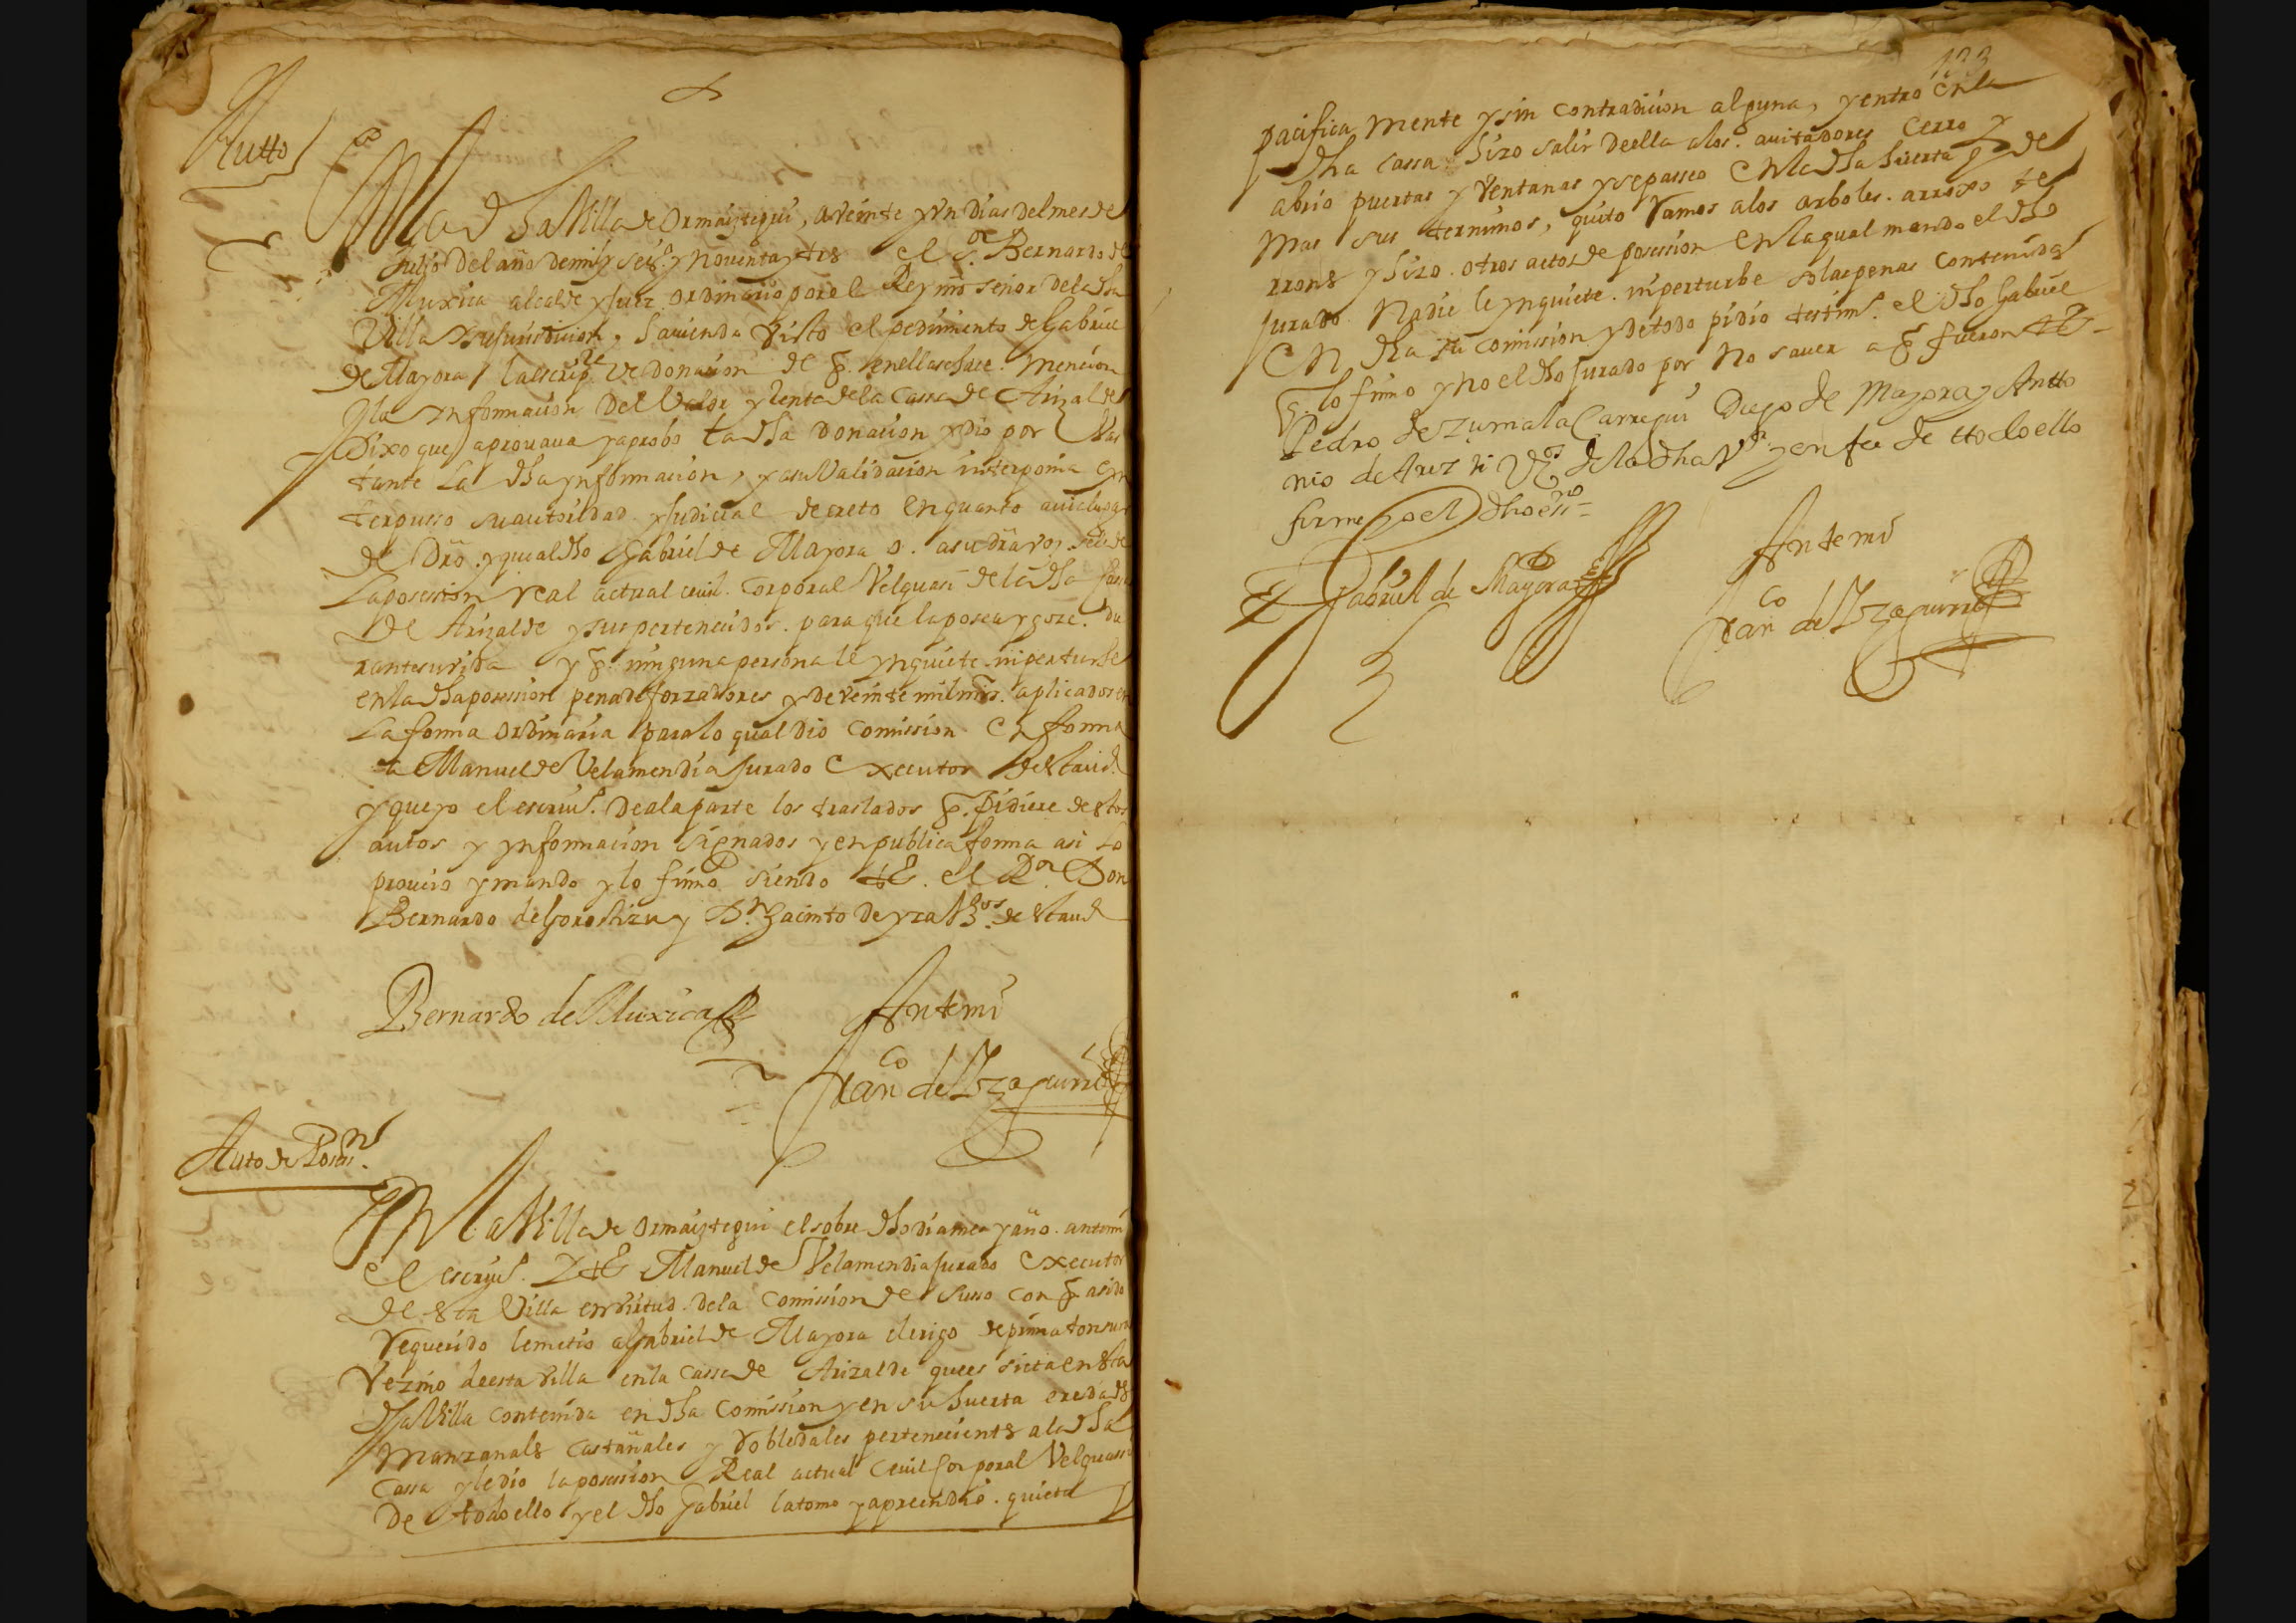 Autto
En la dha Villa de Ormaiztegui, a veinte y un dias del mes de
Julio del año de mil y seisos y noventa y tres el sor Bernardo de
Muxica alcalde y Juez ordinario por el Rey nro señor de la dha
Villa y su jurisdicion, haviendo visto el pedimiento de Gabriel
de Mayora, la escripra de donacion de q. en el se hace mencion
y la ynformacion del valor y renta de la cassa de Arizalde
Dixo que aprouaua y aprobo la dha donacion y dio por bas
tante la dha ynformacion, y a su validacion interponia e yn
terpusso su autoridad y judicial decreto en quanto auia lugar
de Dro. y que al dho Gabriel de Mayora o. a su dra voz. se le de
la posesion real actual ceuil. corporal velquasi de la dha cassa
de Arizalde y sus pertenecidos. para que la posea y goze. du
rante su vida y q. ninguna persona le ynquiete ni perturbe
en la dha posession pena de forzadores y de veinte mil mrs. aplicados en
la forma ordinaria para lo qual dio comission en forma
a Manuel de Velamendia jurado executor de esta uid.
y que yo el escriuo. de a la parte los traslados q. pidiere de estos
autos y ynformacion signados y en publica forma asi lo
proueio y mando y lo firmo siendo to. el Dor. Don
Bernardo de Gorostizu y Dn. Jacinto de yza Vzos. de esta ud
Bernardo de Muxica
Ante mi
Franco de Yzaguirre
Auto de Posesn.
En la Villa de Ormaiztegui el sobre dho dia mes y año. ante mi
el escriuo. y to Manuel de Velamendia jurado executor
de esta Villa en virtud de la comission de suso con q. a sido
requerido le metio al Gabriel de Mayora clerigo de prima tonsura
vezino de esta villa en la cassa de Arizalde que es sita en esta
dha Villa contenida en dha comission y en su huerta eredades
manzanales castañales y robledales pertenecientes a la dha
cassa y le dio la posession Real actual ceuil corporal velquassi
de todo ello y el dho Gabriel la tomo y aprendio. quieta y
123
pacifica mente y sin contradicion alguna, y entro en la
dha cassa hizo salir de ella a los. auitadores cerro y
abrio puertas y ventanas y se passeo en la dha huerta y de
mas sus terminos, quito ramos a los arboles. arroxo te
rrones y hizo. otros actos de posesion en la qual mando el dho
jurado Nadie le ynquiete. ni perturbe so las penas contenidas
en dha su comission y de todo pidio testimo. el dho Gabriel
q. lo firmo y no el dho jurado por no sauer a q. fueron to
Pedro de Zumalacarregui Diego de Mayora y Antto
nio de Arezti Vos de la dha Va y en fee de ttodo ello
firme yo el dho essno
Gabriel de Mayora
Ante mi
Franco de Yzaguirre